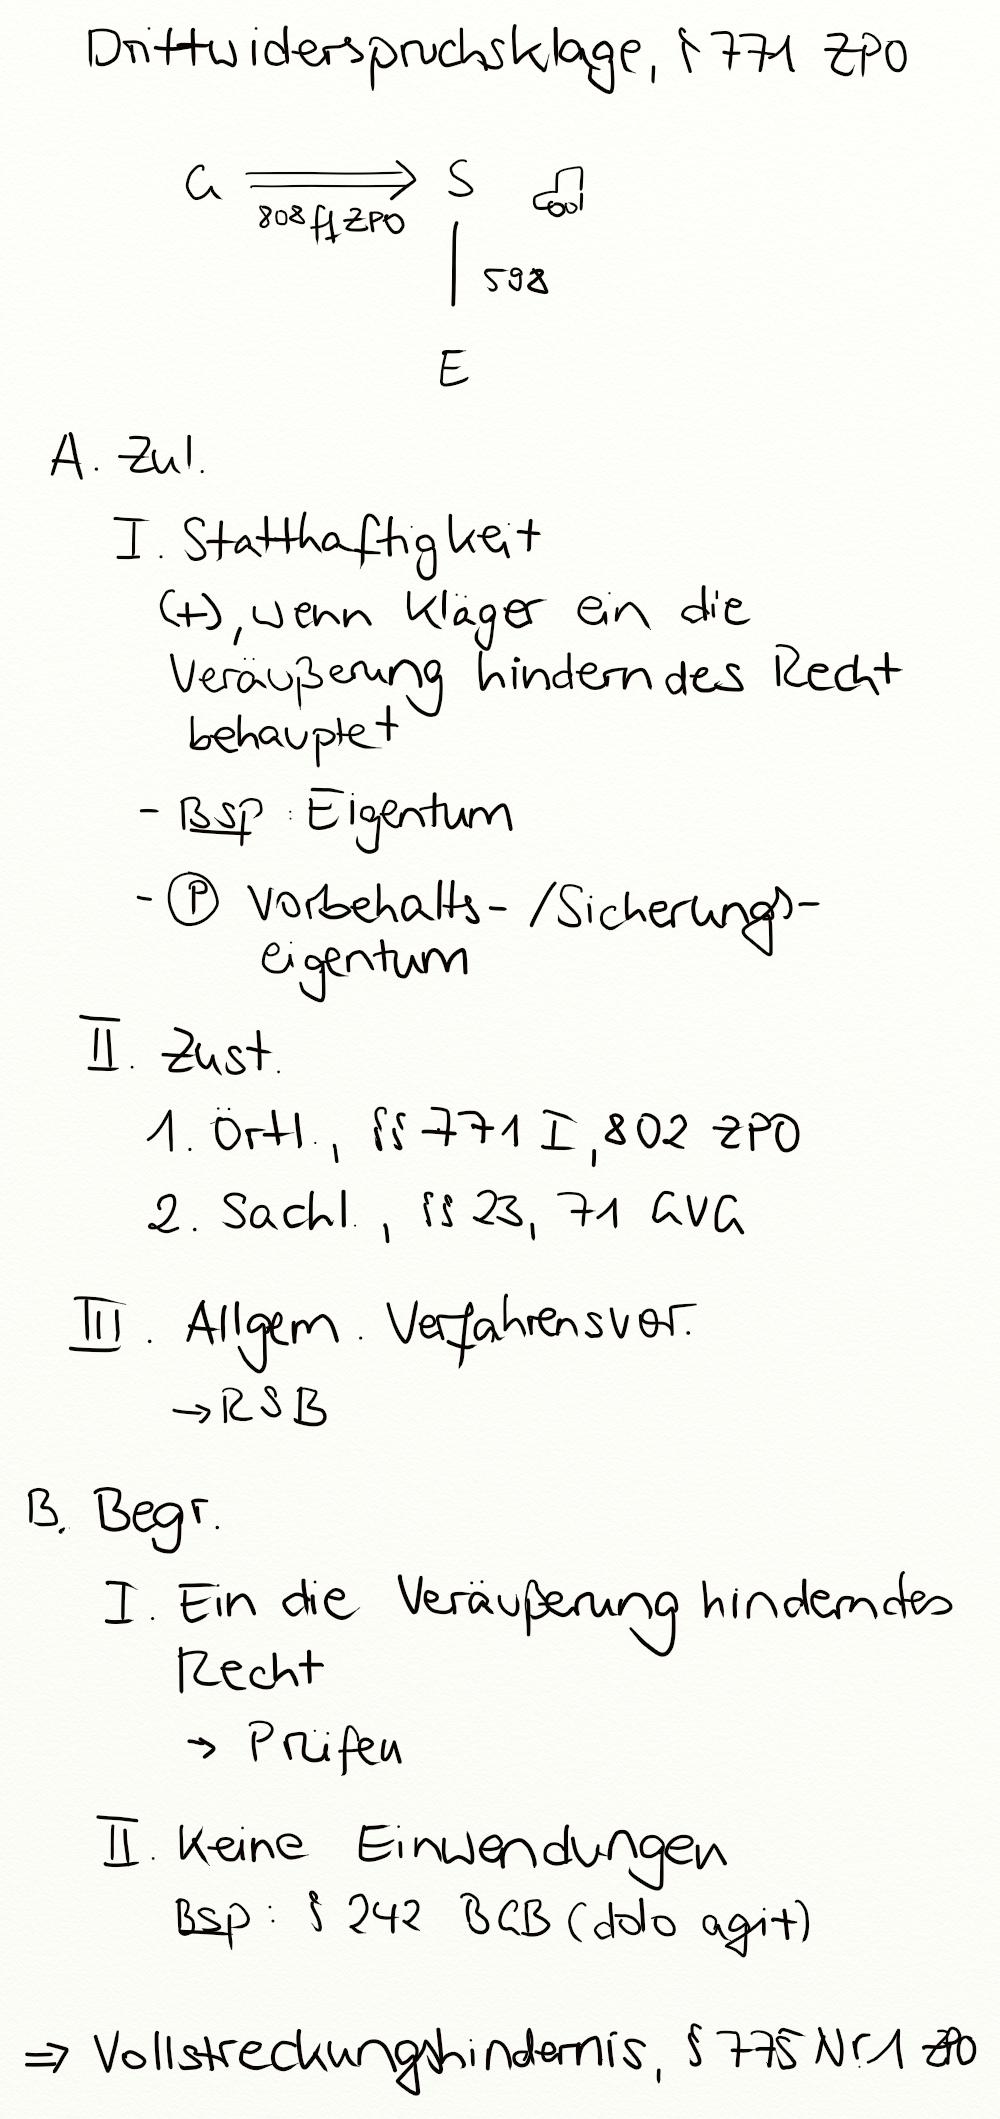 Drittwiderspruchsklage, § 771 ZPO
G S
808 ff ZPO
598
E
A. Zul.
I. Statthaftigkeit
(+), wenn Kläger ein die
Veräußerung hinderndes Recht
behauptet
- Bsp: Eigentum
- (P) Vorbehalts-/Sicherungs-
eigentum
II. Zust.
1. Örtl., §§ 771 I, 802 ZPO
2. Sachl., §§ 23, 71 GVG
III. Allgem. Verfahrensvor.
→ RSB
B. Begr.
I. Ein die Veräußerung hinderndes
Recht
→ Prüfen
II. Keine Einwendungen
Bsp: § 242 BGB (dolo agit)
⇒ Vollstreckungshindernis, § 775 Nr. 1 ZPO